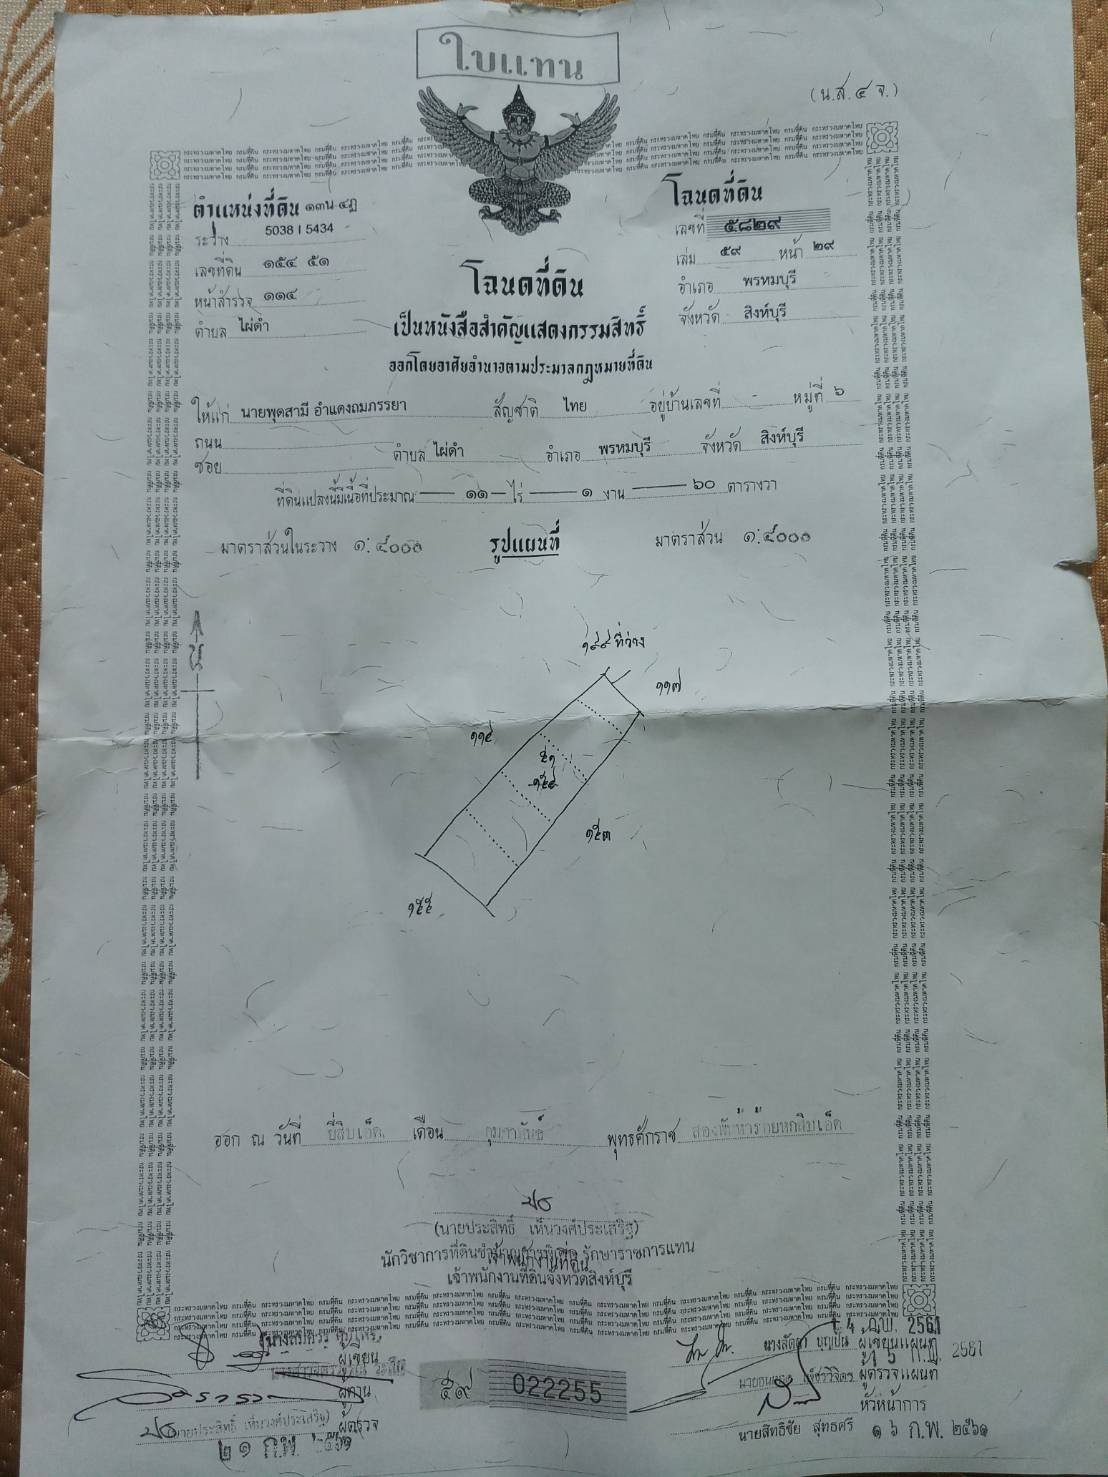 ใบแทน
(น.ส.๔ จ.)
ตำแหน่งที่ดิน ๑๓น ๔ฎ
ระวาง 5038 I 5434
เลขที่ดิน ๑๕๔ ๕๑
หน้าสำรวจ ๑๑๔
ตำบล ไผ่ดำ
โฉนดที่ดิน
เลขที่ ๕๘๒๙
เล่ม ๕๙ หน้า ๒๙
อำเภอ พรหมบุรี
จังหวัด สิงห์บุรี
โฉนดที่ดิน
เป็นหนังสือสำคัญแสดงกรรมสิทธิ์
ออกโดยอาศัยอำนาจตามประมวลกฎหมายที่ดิน
ให้แก่ นายพุดสามี อำแดงถมภรรยา สัญชาติ ไทย อยู่บ้านเลขที่ - หมู่ที่ ๖
ถนน
ซอย ตำบล ไผ่ดำ อำเภอ พรหมบุรี จังหวัด สิงห์บุรี
ที่ดินแปลงนี้มีเนื้อที่ประมาณ ๑๑ ไร่ ๑ งาน ๖๐ ตารางวา
มาตราส่วนในระวาง ๑:๔๐๐๐ รูปแผนที่ มาตราส่วน ๑:๔๐๐๐
น
๑๙๙ ที่ว่าง
๑๑๗
๑๑๕
๕๑
๑๕๔
๑๕๓
๑๕๕
ออก ณ วันที่ ยี่สิบเอ็ด เดือน กุมภาพันธ์ พุทธศักราช สองพันห้าร้อยหกสิบเอ็ด
(นายประสิทธิ์ เห็นวงศ์ประเสริฐ)
นักวิชาการที่ดินชำนาญการพิเศษ รักษาราชการแทน
เจ้าพนักงานที่ดิน
เจ้าพนักงานที่ดินจังหวัดสิงห์บุรี
ผู้เขียน
ผู้ทาน
นายประสิทธิ์ เห็นวงศ์ประเสริฐ) ผู้ตรวจ
๒๑ ก.พ.
๕๙ 022255
๑๔ ก.พ. 2561
นางลัดดา บุญเป็น ผู้เขียนแผนที่
๑๕ ก.พ. 2561
ผู้ตรวจแผนที่
หัวหน้าการ
นายสิทธิชัย สุทธศรี ๑๖ ก.พ. ๒๕๖๑